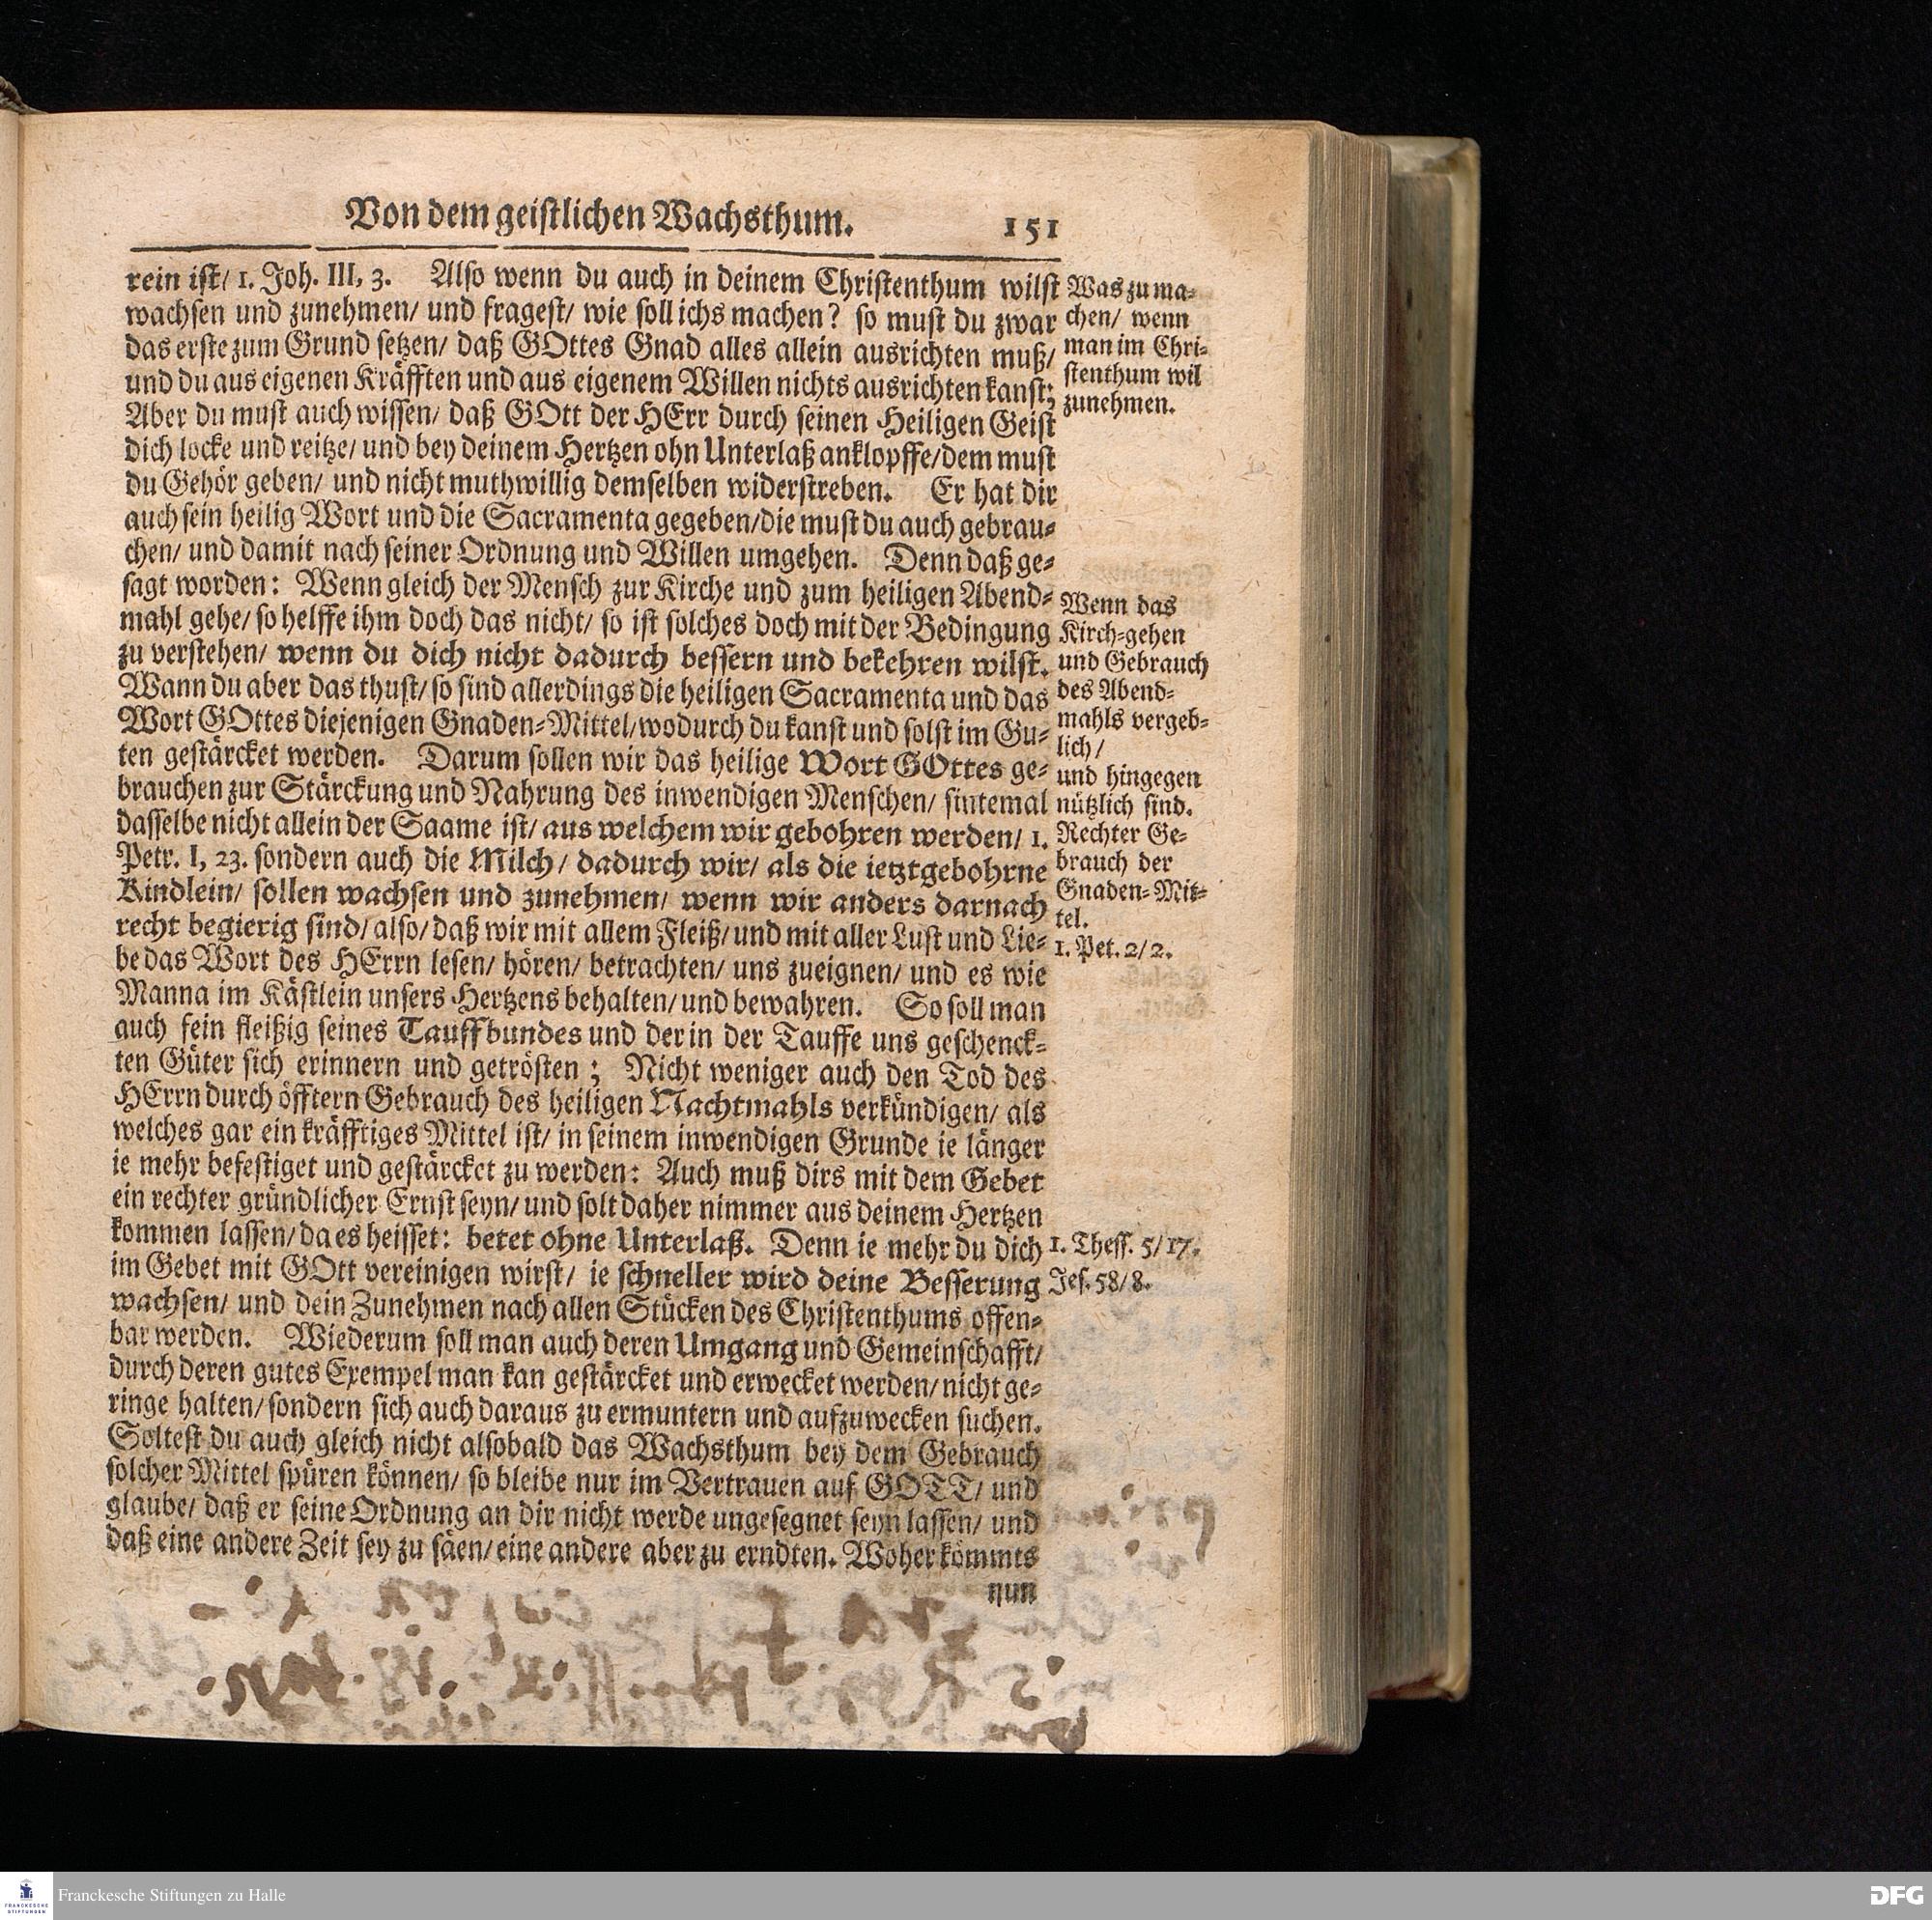 Von dem geistlichen Wachsthum. 151
rein ist/ 1. Joh. III, 3. Also wenn du auch in deinem Christenthum wilst
wachsen und zunehmen/ und fragest/ wie soll ichs machen? so must du zwar
das erste zum Grund setzen/ daß GOttes Gnad alles allein ausrichten muß/
und du aus eigenen Kräfften und aus eigenem Willen nichts ausrichten kanst;
Aber du must auch wissen/ daß GOtt der HErr durch seinen Heiligen Geist
dich locke und reitze/ und bey deinem Hertzen ohn Unterlaß anklopffe/ dem must
du Gehör geben/ und nicht muthwillig demselben widerstreben. Er hat dir
auch sein heilig Wort und die Sacramenta gegeben/ die must du auch gebrau-
chen/ und damit nach seiner Ordnung und Willen umgehen. Denn daß ge-
sagt worden: Wenn gleich der Mensch zur Kirche und zum heiligen Abend-
mahl gehe/ so helffe ihm doch das nicht/ so ist solches doch mit der Bedingung
zu verstehen/ wenn du dich nicht dadurch bessern und bekehren wilst.
Wann du aber das thust/ so sind allerdings die heiligen Sacramenta und das
Wort GOttes diejenigen Gnaden-Mittel/ wodurch du kanst und solst im Gu-
ten gestärcket werden. Darum sollen wir das heilige Wort GOttes ge-
brauchen zur Stärckung und Nahrung des inwendigen Menschen/ sintemal
dasselbe nicht allein der Saame ist/ aus welchem wir gebohren werden/ 1.
Petr. I, 23. sondern auch die Milch/ dadurch wir/ als die ietztgebohrne
Kindlein/ sollen wachsen und zunehmen/ wenn wir anders darnach
recht begierig sind/ also/ daß wir mit allem Fleiß/ und mit aller Lust und Lie-
be das Wort des HErrn lesen/ hören/ betrachten/ uns zueignen/ und es wie
Manna im Kästlein unsers Hertzens behalten/ und bewahren. So soll man
auch fein fleißig seines Tauffbundes und der in der Tauffe uns geschenck-
ten Güter sich erinnern und getrösten; Nicht weniger auch den Tod des
HErrn durch öfftern Gebrauch des heiligen Nachtmahls verkündigen/ als
welches gar ein kräfftiges Mittel ist/ in seinem inwendigen Grunde ie länger
ie mehr befestiget und gestärcket zu werden: Auch muß dirs mit dem Gebet
ein rechter gründlicher Ernst seyn/ und solt daher nimmer aus deinem Hertzen
kommen lassen/ da es heisset: betet ohne Unterlaß. Denn ie mehr du dich
im Gebet mit GOtt vereinigen wirst/ ie schneller wird deine Besserung
wachsen/ und dein Zunehmen nach allen Stücken des Christenthums offen-
bar werden. Wiederum soll man auch deren Umgang und Gemeinschafft/
durch deren gutes Exempel man kan gestärcket und erwecket werden/ nicht ge-
ringe halten/ sondern sich auch daraus zu ermuntern und aufzuwecken suchen.
Soltest du auch gleich nicht alsobald das Wachsthum bey dem Gebrauch
solcher Mittel spüren können/ so bleibe nur im Vertrauen auf GOTT/ und
glaube/ daß er seine Ordnung an dir nicht werde ungesegnet seyn lassen/ und
daß eine andere Zeit sey zu säen/ eine andere aber zu erndten. Woher kömmts
nun
Was zu ma-
chen/ wenn
man im Chri-
stenthum wil
zunehmen.
Wenn das
Kirch-gehen
und Gebrauch
des Abend-
mahls vergeb-
lich/
und hingegen
nützlich sind.
Rechter Ge-
brauch der
Gnaden-Mit-
tel.
1. Pet. 2/2.
1. Thess. 5/17.
Jes. 58/8.
Franckesche Stiftungen zu Halle
FRANCKESCHE
STIFTUNGEN
DFG